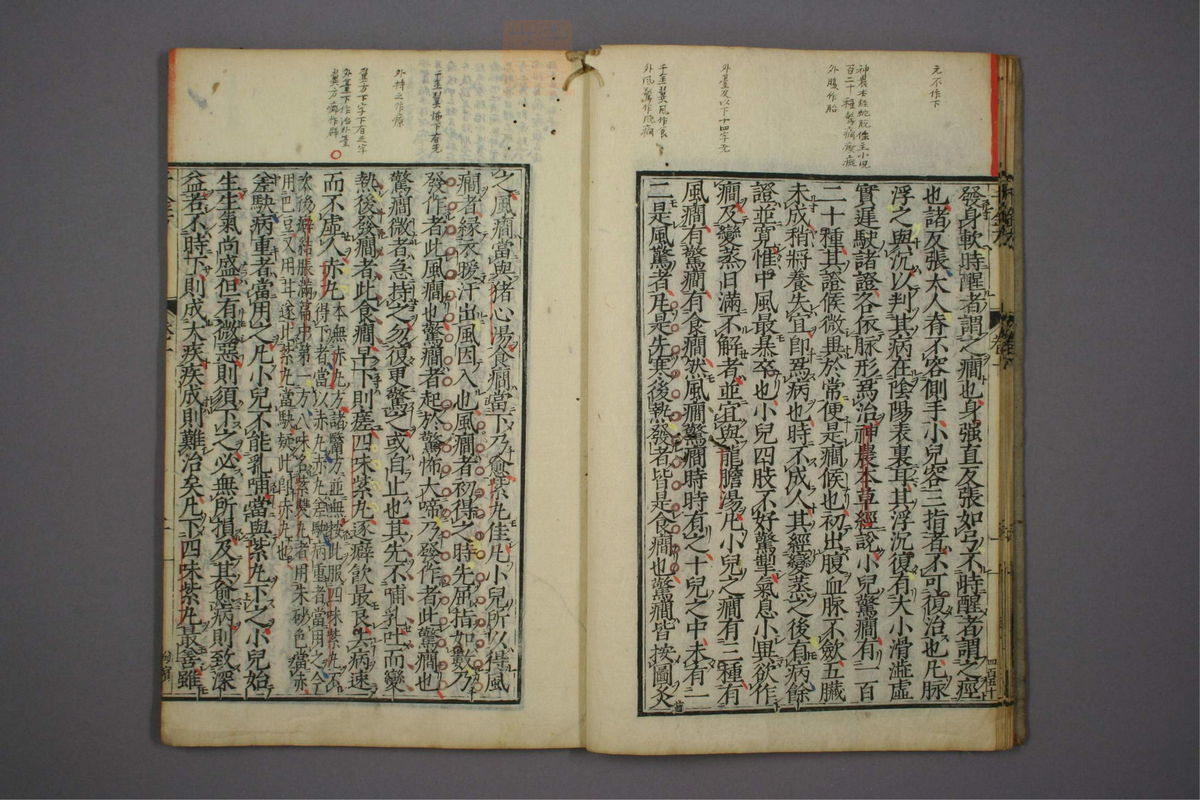 元不作下
神農本經蛇股條主小兒
百二十種驚癇瘈瘲
外腹作胎
外臺及以下十四字无
千金翼風作食
外風驚作風癇
發身軟時醒者謂之癇也身强直反張如弓不時醒者謂之痙
也諸反張大人脊下容側手小兒容三指者不可復治也凡脉
浮之與沉以判其病在陰陽表裏耳其浮沉復有大小滑澁虛
實遲駛諸證各依脉形爲治神農本草經說小兒驚癇有一百
二十種其證候微異於常便是癇候也初出腹血脉不斂五臟
未成稍將養失宜即爲病也時不成人其經變蒸之後有病餘
證並寬惟中風最暴卒也小兒四肢不好驚掣氣息小異欲作
癇及變蒸日滿不解者並宜與龍膽湯凡小兒之癇有三種有
風癇有驚癇有食癇然風癇驚癇時時有之十兒之中未有一
二是風驚者凡是先寒後熱發者皆是食癇也驚癇皆按圖灸
外持之作療
翼方下字下有三字
外臺下作治外臺
翼方癖作辟
之風癇當與猪心湯食癇當下乃愈紫丸佳凡小兒所以得風
癇者緣衣暖汗出風因入也風癇者初得之時先屈指如數乃
發作者此風癇也驚癇者起於驚怖大啼乃發作者此驚癇也
驚癇微者急持之勿復更驚之或自止也其先不哺乳吐而變
熱後發癇者此食癇早下則瘥四味紫丸逐癖飲最良去病速
而不虛人赤丸本無赤丸方諸醫方並無按此服四味紫丸不
得下者當以赤丸赤丸差駛病重者當用之今
次後癖結脹滿篇中第一方八味名紫雙丸者用朱砂色當赤
用巴豆又用甘遂比紫丸當駛疑此即赤丸也
差駛病重者當用之凡小兒不能乳哺當與紫丸下之小兒始
生生氣尚盛但有微惡則須下之必無所損及其愈病則致深
益若不時下則成大疾疾成則難治矣凡下四味紫丸最善雖